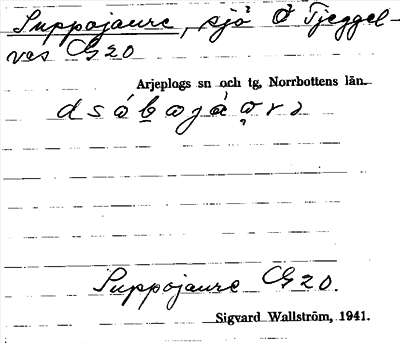 Suppojaure, sjö Ö Tjeggel-
vas G20
Arjeplogs sn och tg, Norrbottens län.
Suppojaure G20.
Sigvard Wallström, 1941.